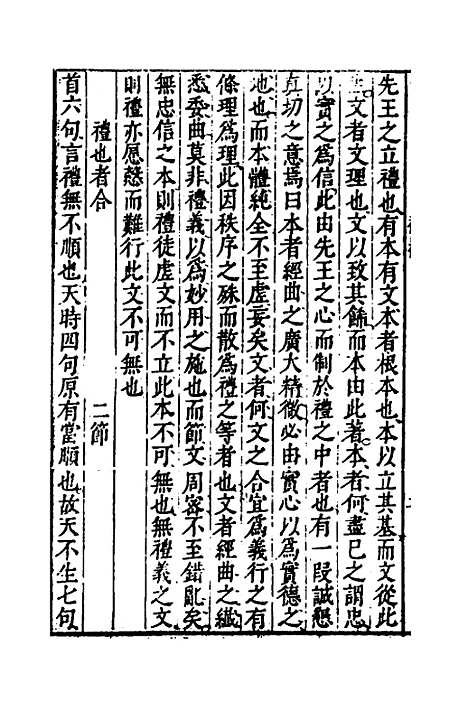 先王之立禮也有本有文本者根本也本以立其基而文從此
文者文理也文以致其餙而本由此著本者何盡已之謂忠
以實之為信此由先王之心而制於禮之中者也有一段誠懇
真切之意焉曰本者經曲之廣大精微必由實心以為實德之
地也而本體純全不至虛妄矣文者何文之合宜為義行之有
條理為理此因秩序之殊而散為禮之等者也文者經曲之纖
悉委曲莫非禮義以為妙用之施也而節文周宻不至錯亂矣
無忠信之本則禮徒虛文而不立此本不可無也無禮義之文
則禮亦愿慤而難行此文不可無也
禮也者合　　二節
首六句言禮無不順也天時四句原有當順也故天不生七句